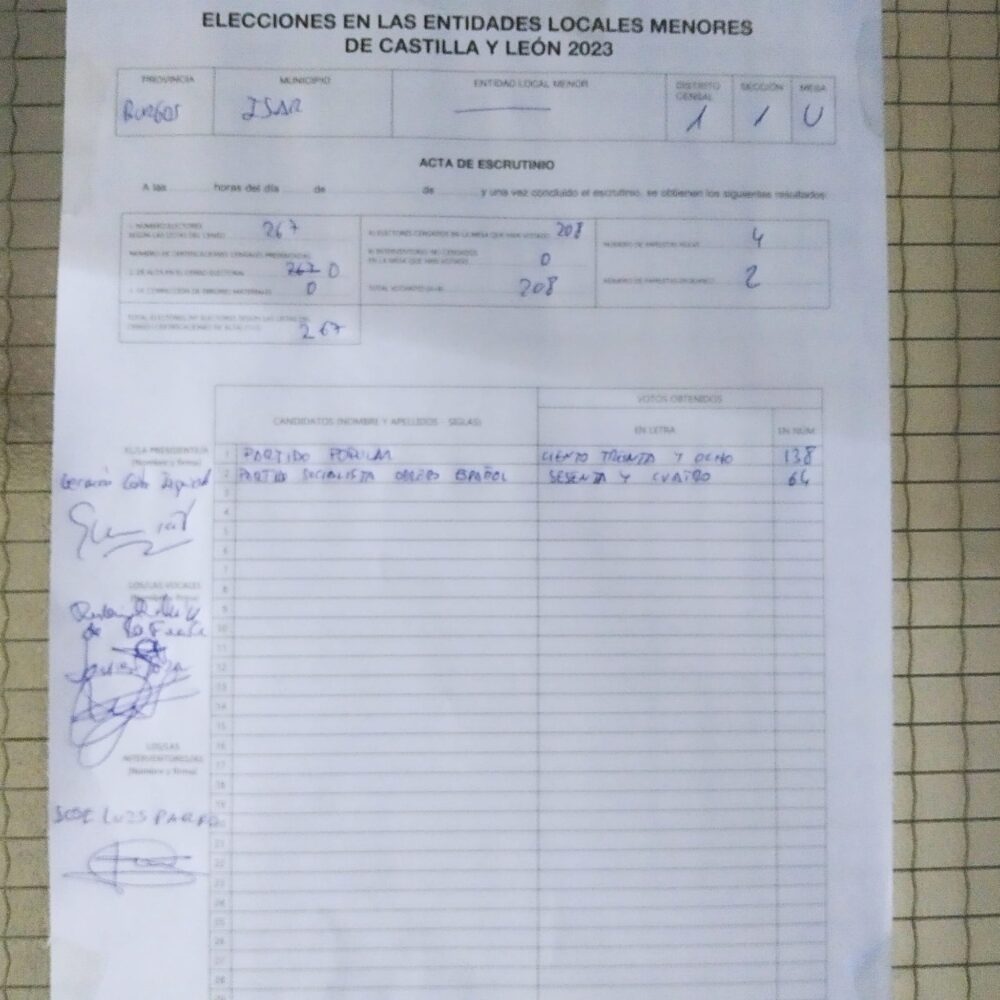 ELECCIONES EN LAS ENTIDADES LOCALES MENORES
DE CASTILLA Y LEÓN 2023
PROVINCIA MUNICIPIO ENTIDAD LOCAL MENOR DISTRITO CENSAL SECCIÓN MESA
BURGOS ISAR 1 1 U
ACTA DE ESCRUTINIO
A las horas del día de de y una vez concluido el escrutinio, se obtienen los siguientes resultados:
1. NÚMERO ELECTORES
SEGÚN LAS LISTAS DEL CENSO 267
NÚMERO DE CERTIFICACIONES CENSALES PRESENTADAS
2. DE ALTA EN EL CENSO ELECTORAL 267 0
3. DE CORRECCIÓN DE ERRORES MATERIALES 0
TOTAL ELECTORES
CENSO 267
A) ELECTORES CENSADOS EN LA MESA QUE HAN VOTADO 208
B) INTERVENTORES NO CENSADOS
EN LA MESA QUE HAN VOTADO 0
TOTAL VOTANTES (A+B) 208
NÚMERO DE PAPELETAS NULAS 4
NÚMERO DE PAPELETAS EN BLANCO 2
CANDIDATOS (NOMBRE Y APELLIDOS - SIGLAS)
VOTOS OBTENIDOS
EN LETRA EN NÚM.
1 PARTIDO POPULAR CIENTO TREINTA Y OCHO 138
2 PARTIDO SOCIALISTA OBRERO ESPAÑOL SESENTA Y CUATRO 64
3
4
5
6
7
8
9
10
11
12
13
14
15
16
17
18
19
20
21
22
23
24
25
26
27
28
EL/LA PRESIDENTE/A
(Nombre y firma)
LOS/LAS VOCALES
(Nombre y firma)
de la Fuente
LOS/LAS
INTERVENTORES/AS
(Nombre y firma)
JOSE LUIS